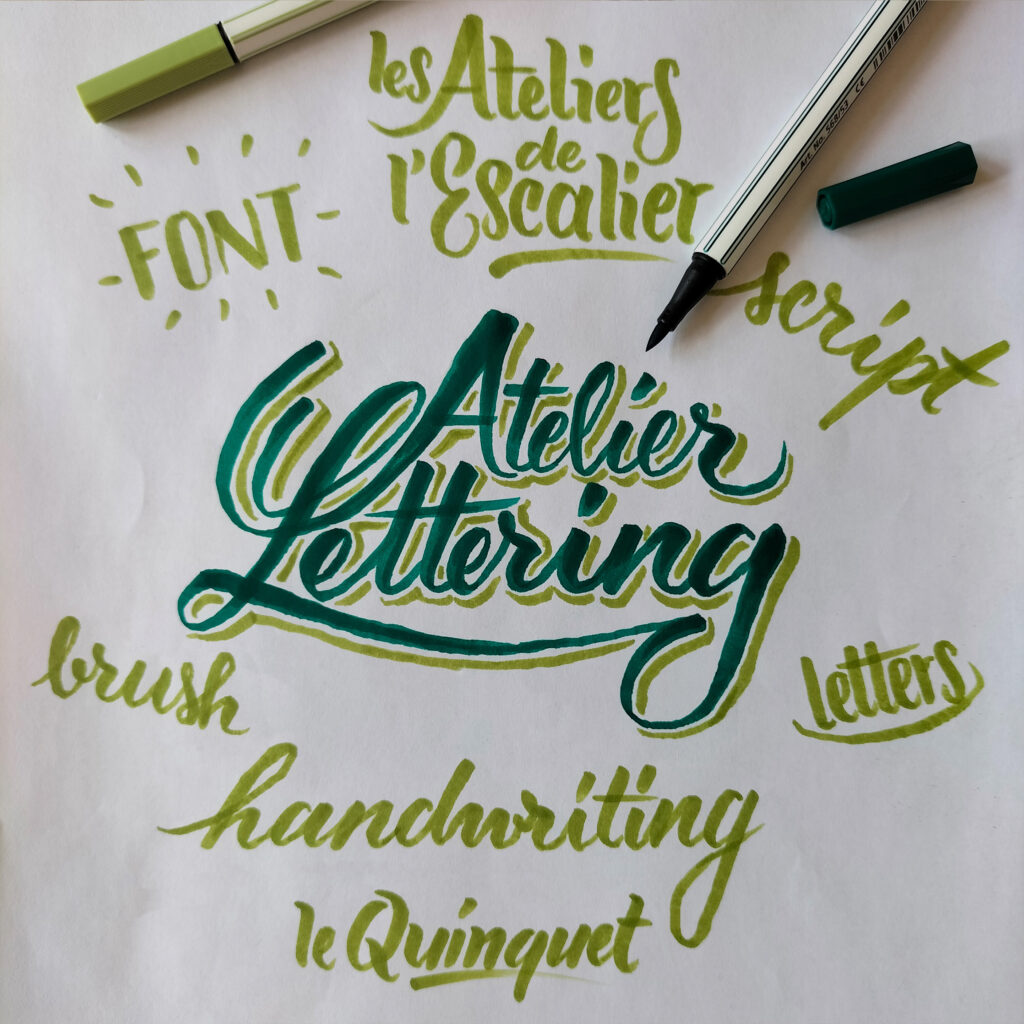 les Ateliers
de
l'Escalier
FONT
Art. No. 568/53
CE
script
Atelier
Lettering
brush
letters
handwriting
le Quinquet